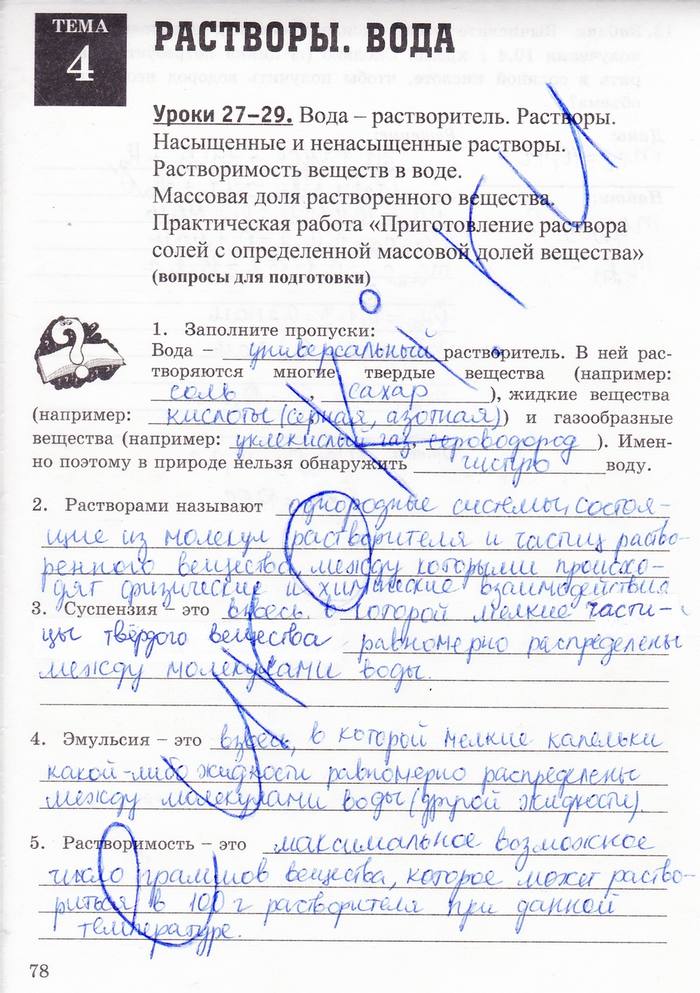 ТЕМА
4
РАСТВОРЫ. ВОДА
Уроки 27–29. Вода – растворитель. Растворы.
Насыщенные и ненасыщенные растворы.
Растворимость веществ в воде.
Массовая доля растворенного вещества.
Практическая работа «Приготовление раствора
солей с определенной массовой долей вещества»
(вопросы для подготовки)
1. Заполните пропуски:
Вода – универсальный растворитель. В ней рас-
творяются многие твердые вещества (например:
соль, сахар), жидкие вещества
(например: кислоты (серная, азотная)) и газообразные
вещества (например: углекислый газ, сероводород). Имен-
но поэтому в природе нельзя обнаружить чистую воду.
2. Растворами называют однородные системы, состоя-
щие из молекул растворителя и частиц раство-
ренного вещества, между которыми происхо-
дят физические и химические взаимодействия
3. Суспензия – это взвесь, в которой мелкие части-
цы твёрдого вещества равномерно распределены
между молекулами воды.
4. Эмульсия – это взвесь, в которой мелкие капельки
какой-либо жидкости равномерно распределены
между молекулами воды (другой жидкости).
5. Растворимость – это максимальное возможное
число граммов вещества, которое может раство-
риться в 100 г растворителя при данной
температуре.
78